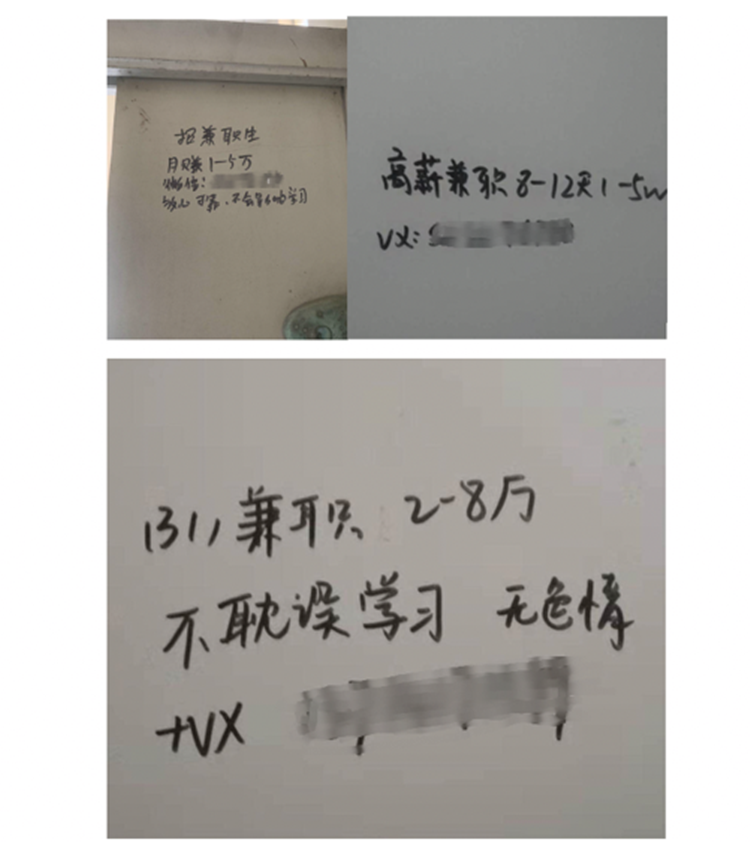 招兼职生
月赚1-5万
微信:
放心可靠,不会影响学习
高薪兼职8-12天1-5w
VX:
(31)兼职 2-8万
不耽误学习 无色情
+VX